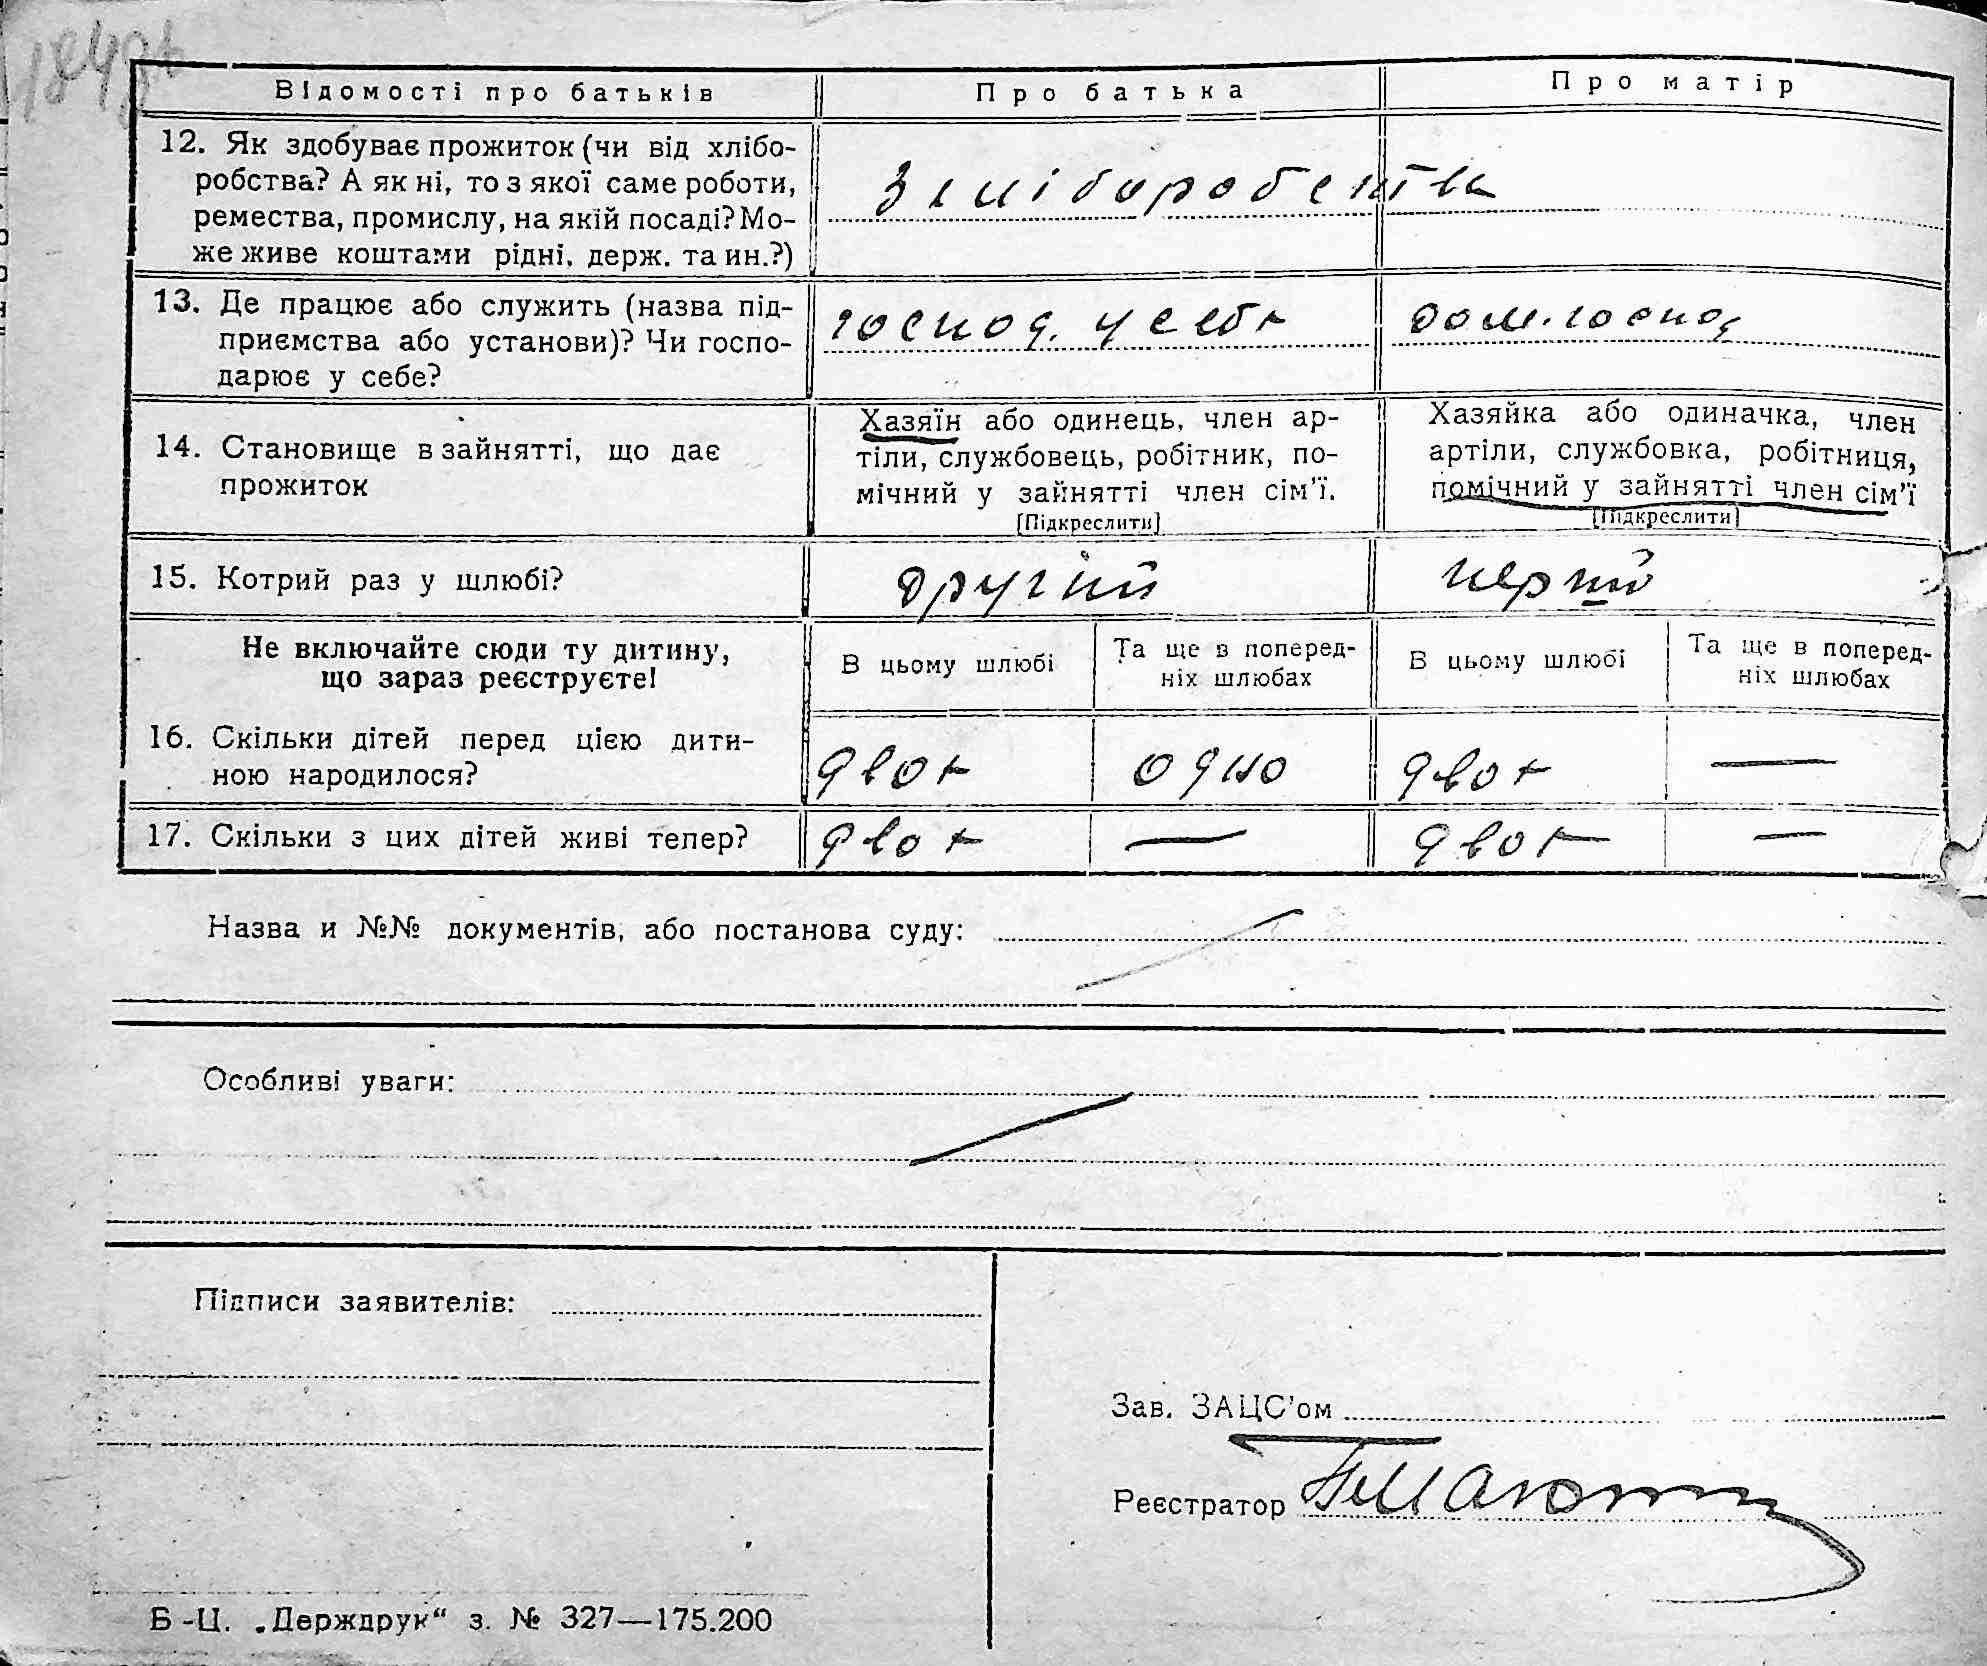 Відомості про батьків Про батька Про матір
12. Як здобуває прожиток (чи від хлібо-
робства? А як ні, то з якої саме роботи,
ремества, промислу, на якій посаді? Мо-
же живе коштами рідні, держ. та ин.?)
З хліборобства
13. Де працює або служить (назва під-
приємства або установи)? Чи госпо-
дарює у себе?
господ. у себе
дом. господ
14. Становище в зайнятті, що дає
прожиток
Хазяїн або одинець, член ар-
тіли, службовець, робітник, по-
мічний у зайнятті член сім’ї.
[Підкреслити]
Хазяйка або одиначка, член
артіли, службовка, робітниця,
помічний у зайнятті член сім’ї
[Підкреслити]
15. Котрий раз у шлюбі? другий перший
Не включайте сюди ту дитину,
що зараз реєструєте!
В цьому шлюбі
Та ще в поперед-
ніх шлюбах
В цьому шлюбі
Та ще в поперед-
ніх шлюбах
16. Скільки дітей перед цією дити-
ною народилося?
двоє одно двоє —
17. Скільки з цих дітей живі тепер? двоє — двоє —
Назва и №№ документів, або постанова суду:
Особливі уваги:
Підписи заявителів:
Зав. ЗАЦС’ом
Реєстратор
Б-Ц. „Держдрук“ з. № 327—175.200